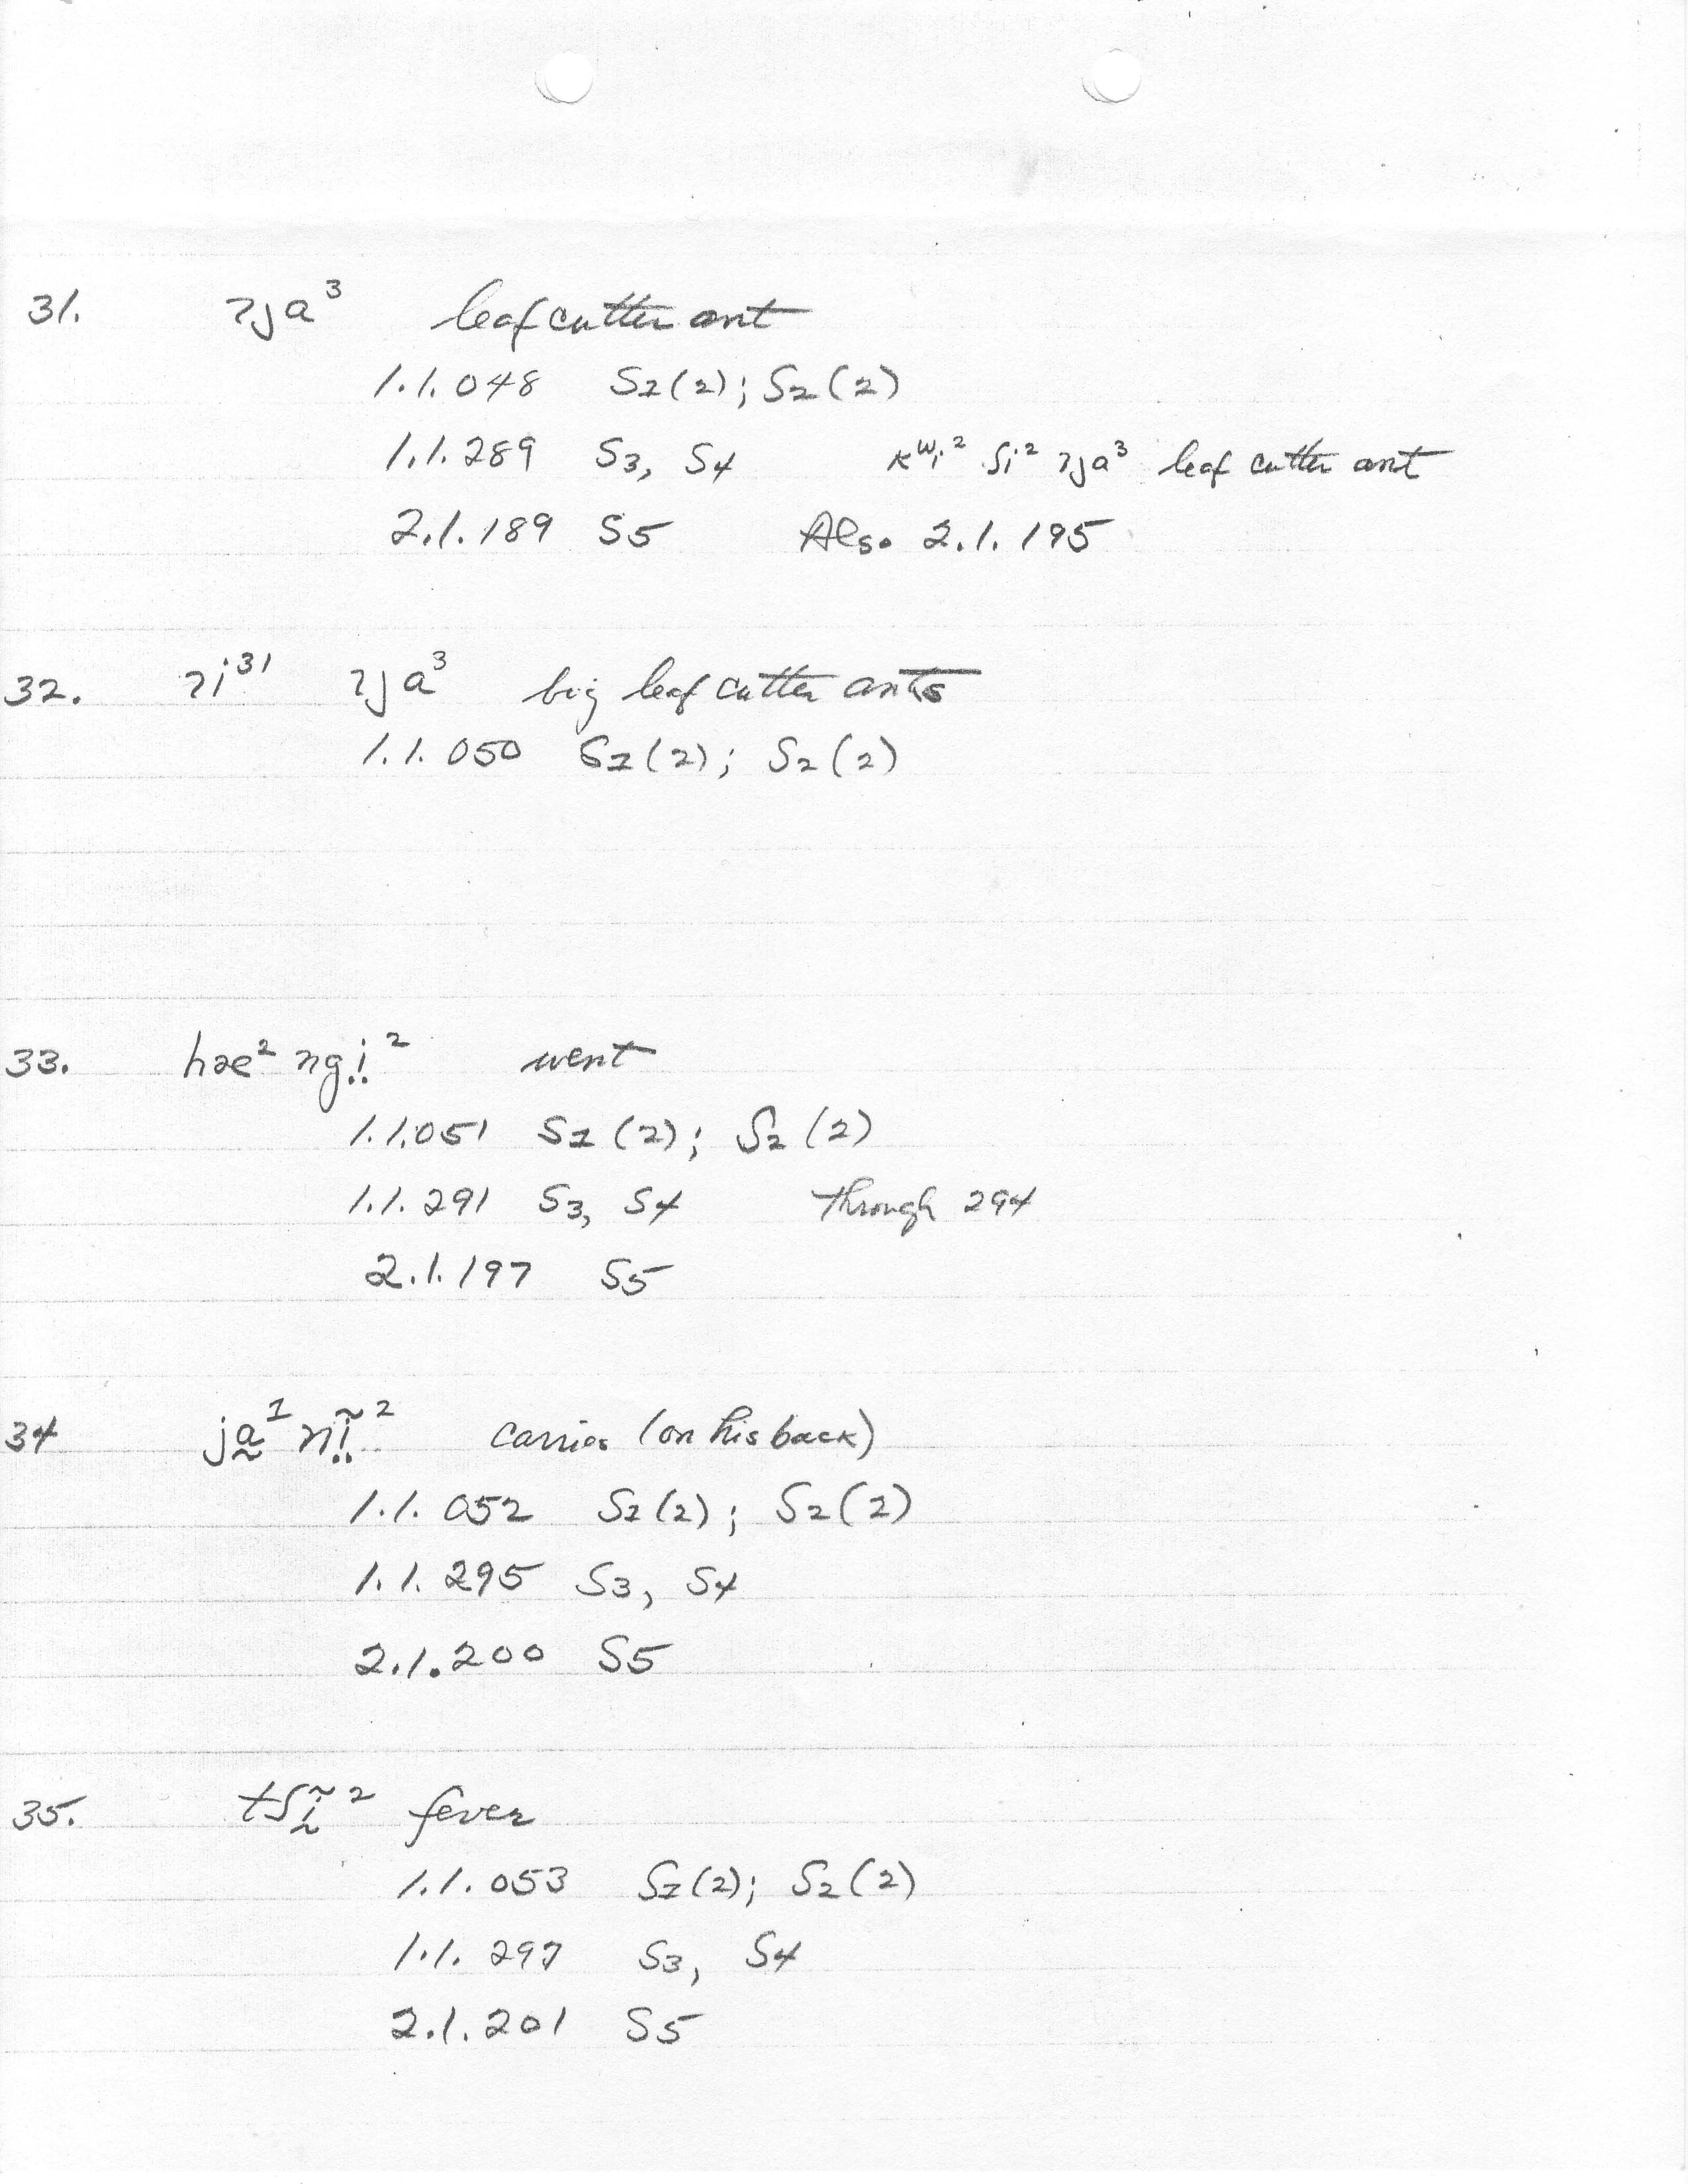 31. ʔja³ leafcutter ant
1.1.048 S1(2); S2(2)
1.1.289 S3, S4 kʷi² ʃi² ʔja³ leaf cutter ant
2.1.189 S5 Also 2.1.195
32. ʔi³¹ ʔja³ big leaf cutter ants
1.1.050 S1(2); S2(2)
33. hæ² ngi̤² went
1.1.051 S1(2); S2(2)
1.1.291 S3, S4 through 294
2.1.197 S5
34 ja̰¹ nĩ̤² carries (on his back)
1.1.052 S1(2); S2(2)
1.1.295 S3, S4
2.1.200 S5
35. tʃḭ̃² fever
1.1.053 S1(2); S2(2)
1.1.297 S3, S4
2.1.201 S5